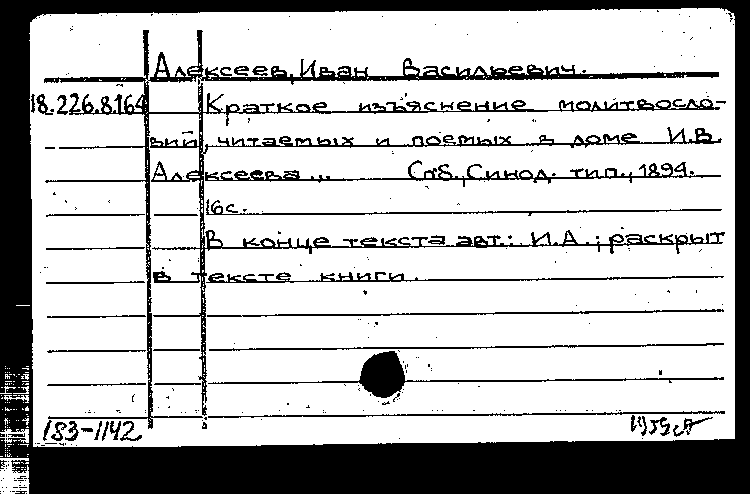 Алексеев, Иван Васильевич.
18.226.8.164 Краткое изъяснение молитвосло-
вий, читаемых и поемых в доме И.В.
Алексеева... Спб., Синод. тип., 1894.
16с.
В конце текста авт.: И.А.; раскрыт
в тексте книги.
183-1142